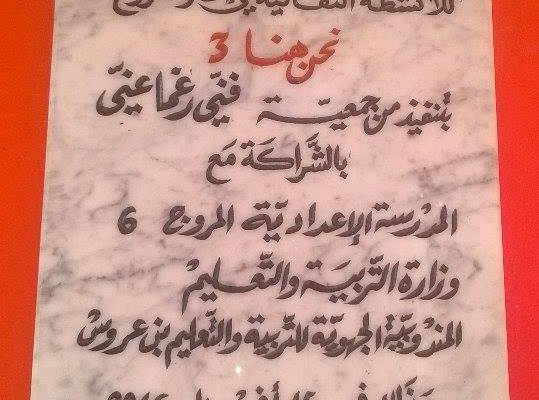 للأنشطة الثقافية
نحن هنا 3
بتنفيذ من جمعيّة فنّي رغما عنّي
بالشَّراكَة مَع
المدْرسة الإعداديّة المروج 6
وزارة التّربيَة والتّعليمْ
المندُوبيّة الجهويّة للتّربية والتّعليم بن عروسْ
وَذلك في